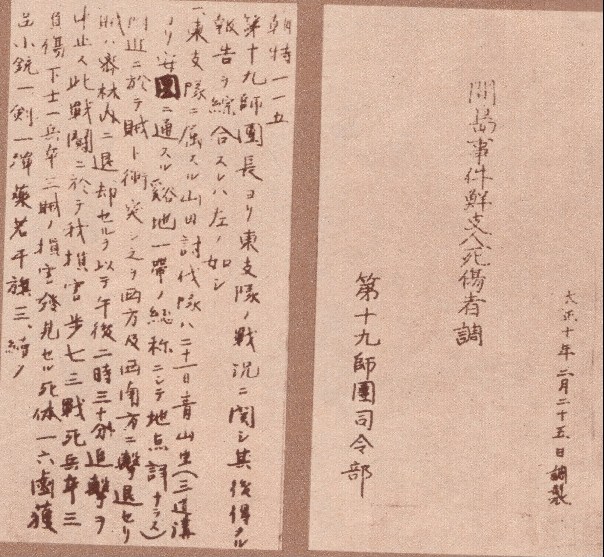 大正十年二月二十五日調製
間島事件鮮支人死傷者調
第十九師團司令部
朝特一一五
第十九師團長ヨリ東支隊ノ戰況ニ関シ其後得タル
報告ヲ綜合スレハ左ノ如シ
一、東支隊ニ属スル山田討伐隊ハ二十一日青山里(三道溝
ヨリ安圖ニ通スル谿地一帶ノ総称ニシテ地点詳ナラス)
附近ニ於テ賊ト衝突シ之ヲ西方及西南方ニ撃退セリ
賊ハ密林内ニ退却セルヲ以テ午後二時三十分追撃ヲ
中止ス此戰闘ニ於テ我損害歩七三戰死兵卒三
負傷下士一兵卒三賊ノ損害發見セル死体一六鹵獲
品小銃一剣一弾藥若干旗三、